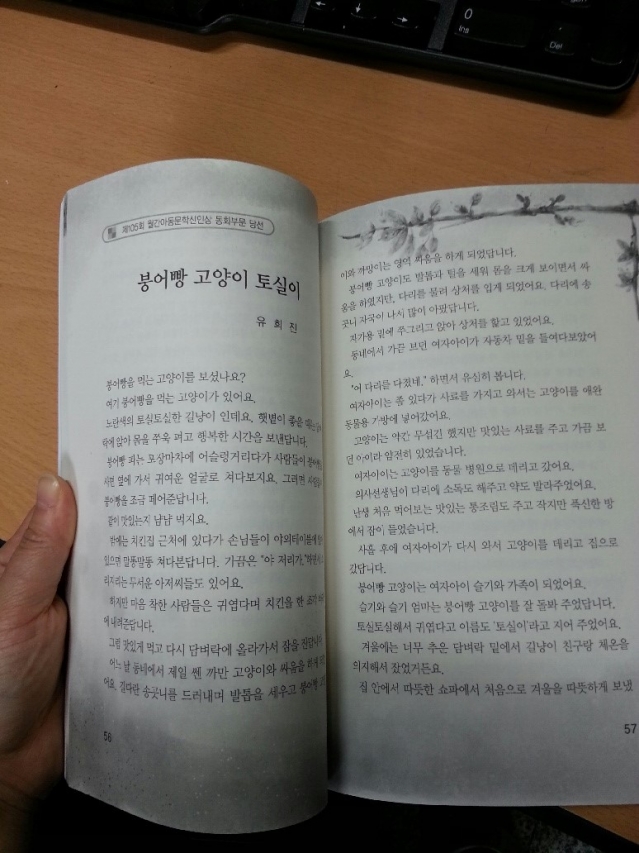 0
Ins
Del
제105회 월간아동문학신인상 동화부문 당선
붕어빵 고양이 토실이
유 희 진
붕어빵을 먹는 고양이를 보셨나요?
여기 붕어빵을 먹는 고양이가 있어요.
노란색의 토실토실한 길냥이 인데요, 햇볕이 좋은
락에 앉아 몸을 쭈욱 펴고 행복한 시간을 보낸답니다.
붕어빵 파는 포장마차에 어슬렁거리다가 사람들이 붕어빵
시면 옆에 가서 귀여운 얼굴로 쳐다보지요. 그러면
붕어빵을 조금 떼어준답니다.
같이 맛있는지 냠냠 먹지요.
밤에는 치킨집 근처에 있다가 손님들이 야외테이블에
있으면 말똥말똥 쳐다본답니다. 가끔은 "야 저리가,"
리치라는 무서운 아저씨들도 있어요.
하지만 마음 착한 사람들은 귀엽다며 치킨을 한
에 내려준답니다.
그럼 맛있게 먹고 다시 담벼락에 올라가서 잠을
어느 날 동네에서 제일 쎈 까만 고양이와 싸움을 하게
어요. 길다란 송곳니를 드러내며 발톱을 세우고 붕어빵
56
이와 까망이는 영역 싸움을 하게 되었답니다.
붕어빵 고양이도 발톱과 털을 세워 몸을 크게 보이면서 싸
움을 하였지만, 다리를 물려 상처를 입게 되었어요. 다리에 송
곳니 자국이 나서 많이 아팠답니다.
자가용 밑에 쭈그리고 앉아 상처를 핥고 있었어요.
동네에서 가끔 보던 여자아이가 자동차 밑을 들여다보았어
요.
"어 다리를 다쳤네." 하면서 유심히 봅니다.
여자아이는 좀 있다가 사료를 가지고 와서는 고양이를 애완
동물용 가방에 넣어갔어요.
고양이는 약간 무섭긴 했지만 맛있는 사료를 주고 가끔 보
던 아이라 얌전히 있었습니다.
여자아이는 고양이를 동물 병원으로 데리고 갔어요.
의사선생님이 다리에 소독도 해주고 약도 발라주었어요.
난생 처음 먹어보는 맛있는 통조림도 주고 작지만 푹신한 방
에서 잠이 들었습니다.
사흘 후에 여자아이가 다시 와서 고양이를 데리고 집으로
갔답니다.
붕어빵 고양이는 여자아이 슬기와 가족이 되었어요.
슬기와 슬기 엄마는 붕어빵 고양이를 잘 돌봐 주었답니다.
토실토실해서 귀엽다고 이름도 '토실이'라고 지어 주었어요.
겨울에는 너무 추운 담벼락 밑에서 길냥이 친구랑 체온을
의지해서 잤었거든요.
집 안에서 따뜻한 쇼파에서 처음으로 겨울을 따뜻하게 보냈
57